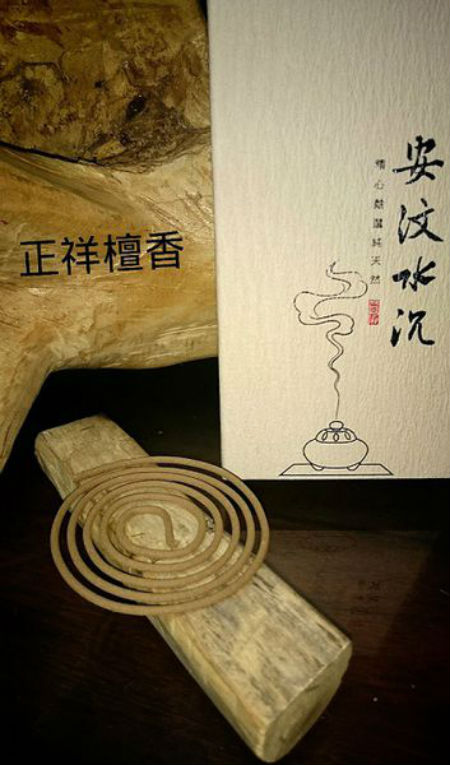 正祥檀香
安汶水沉
精心嚴選純天然